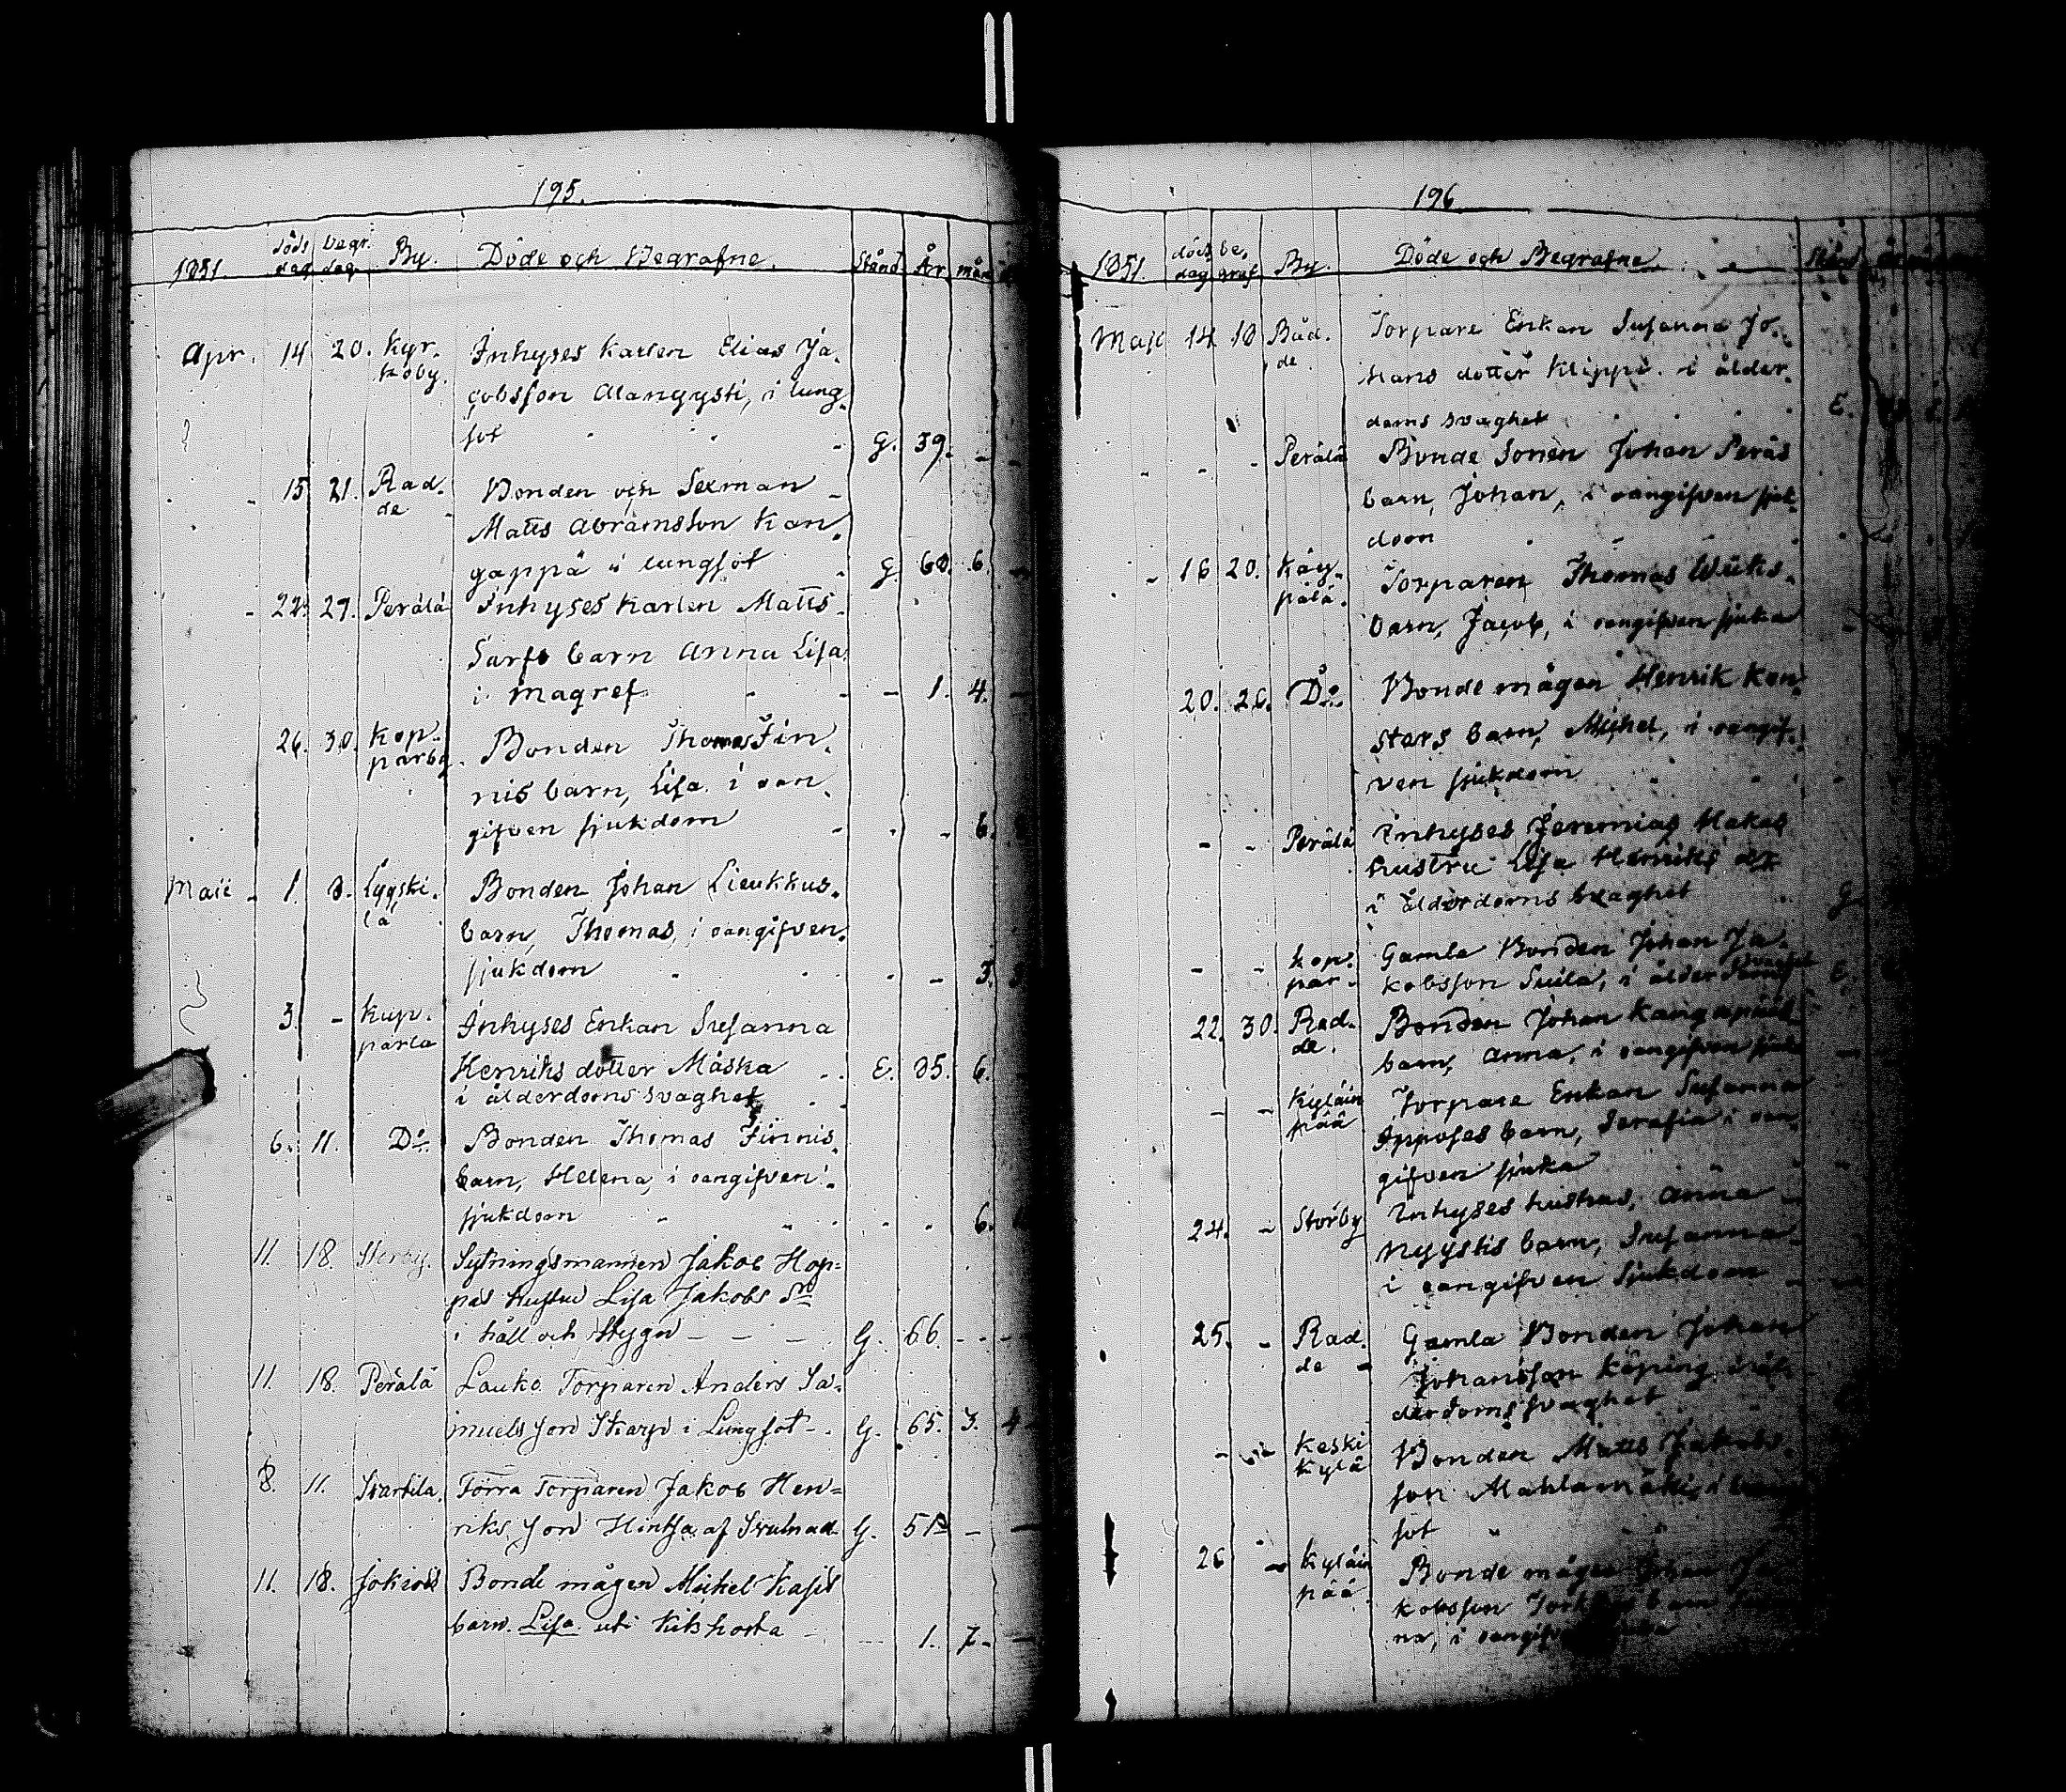 195.
1851. döds dag begr. dag. By. Döde och Begrafne. Stånd År mån
Apr. 14 20. Kyr- Inhyses Karlen Elias Ja-
koby. cobsson Alangysti, i lung-
sot G. 39. - -
- 15 21. Rad- Bonden och Sexman
de Matts Abramsson Kan-
gappä i lungsot G. 60. 6 -
- 22. 29. Perälä Inhyses Karlen Matts
Sarfs barn Anna Lisa
i Magref - 1. 4. -
26. 30. Kop- Bonden Thomas Fin-
parby. nis barn, Lisa i oan-
gifven sjukdom - - 6.
Maii - 1. 8. Lygski- Bonden Johan Lieukkus
lä barn, Thomas, i oangifven
sjukdom - - 3.
3. - Kup- Inhyses Enkan Susanna
parla Henriks dotter Måska E. 85. 6.
i ålderdoms svaghet
6. 11. Do Bonden Thomas Finnis
barn, Helena, i oangifven
sjukdom - - 6.
11. 18. Storby. Sytningsmannen Jakob Hop-
pas Hustru Lisa Jakobs Dr
i håll och Stygn - - - G. 66. - - -
11. 18. Perälä Lauko Torparen Anders Sa-
muels son Skarp i Lungsot - G. 65. 3. 4
8. 11. Svartila. Förra Torparen Jakob Hen-
riks son Hintsa af Svulnad G. 51 - -
11. 18. Jokiois Bonde mågen Michel Kasis
barn. Lisa uti Kikhosta - 1. 7. -
196
1851. döds dag be, graf By. Döde och Begrafne. Stånd
Maji 14 18 Rad- Torpare Enkan Susanna Jo-
de hans dotter Klippi i ålder-
doms svaghet E.
- - Perälä Bonde Sonen Johan Peräs
barn, Johan, i oangifven sjuk-
dom
- 16 20. Käy- Torparen Thomas Wiiks
pälä. barn, Jacob, i oangifven sjuka
20. 26. Do Bonde mågen Henrik Kon-
stars barn, Michel, i oangif-
ven sjukdom
- - Perälä Inhyses Jeremias Hakas
hustru Lisa Henriks dr
i ålderdoms svaghet G
- - Kop- Gamla Bonden Johan Ja-
par- kobsson Snila, i ålderdoms svaghet E.
22. 30. Rad- Bonden Johan Kangapääs
de. barn, Anna, i oangifven sjuka
- - Kyläin Torpare Enkan Susanna
pää barn, Serafia i oan-
gifven sjuka
24. - Storby Inhyses hustrus, Anna
Nygystis barn, Susanna
i oangifven Sjukdom
25. - Rad- Gamla Bonden Johan
de Johansson Köping i ål-
derdoms svaghet
- Keski Bonden Matts Jakobs-
kylä son Mahlamäki, i lung
sot
26 - Kyläin Bonde mågen Johan Ja-
pää kobsson barn
na, i oangifven